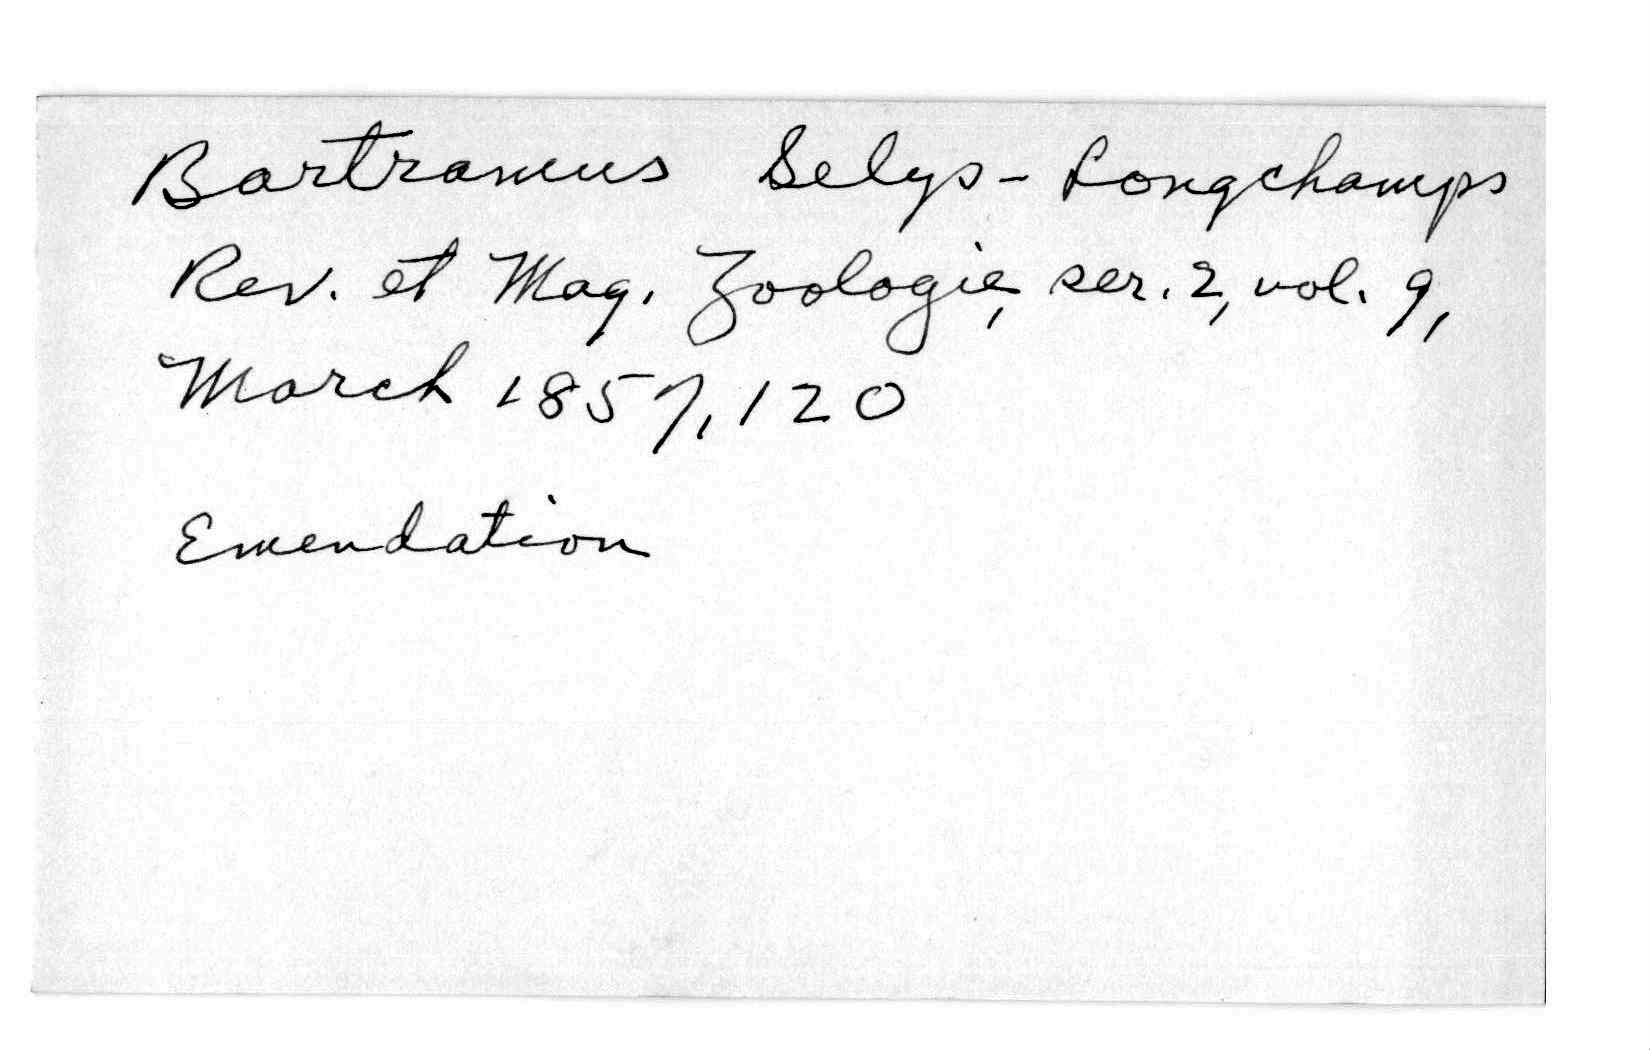 Bartramus Selys-Longchamps
Rev. et Mag. Zoologie, ser. 2, vol. 9,
March 1857, 120
Emendation